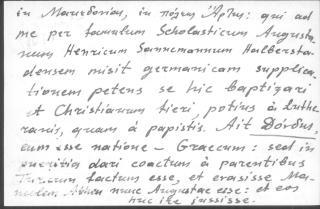 in Macedonian, in πόλεως Ἄρτης: qui ad
me per famulum Scholasticum Augusta-
num Henricum Sannemannum Halbersta-
densem misit germanicam supplica-
tionem petens se hic baptizari
et Christianum fieri, potius à Luthe-
ranis, quam à papistis. Ait
eum esse natione - Graecum: sed in
pueritia dari coactum à parentibus
Turcicum factum esse, et evasisse
nunc Augustae esse: et eos
huc ile jussisse.